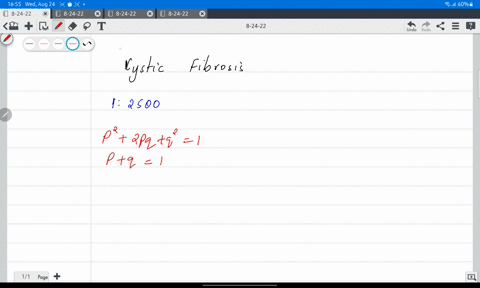 16:55 Wed, Aug 24 60%
8-24-22 8-24-22 8-24-22 8-24-22
8-24-22 Undo Redo
Cystic Fibrosis
1:2500
p² + 2pq + q² = 1
p + q = 1
1/1 Page